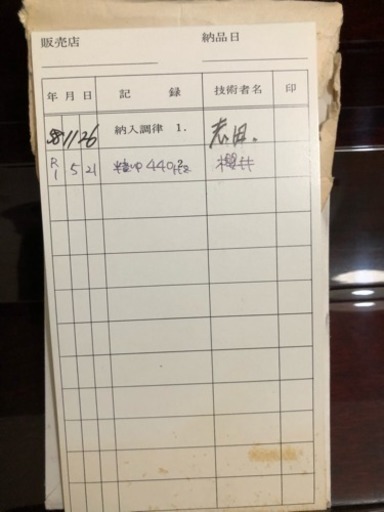 販売店 納品日
年 月 日 記 録 技術者名 印
58 11 26 納入調律 1. 志田.
R1 5 21 440Hz 櫻井